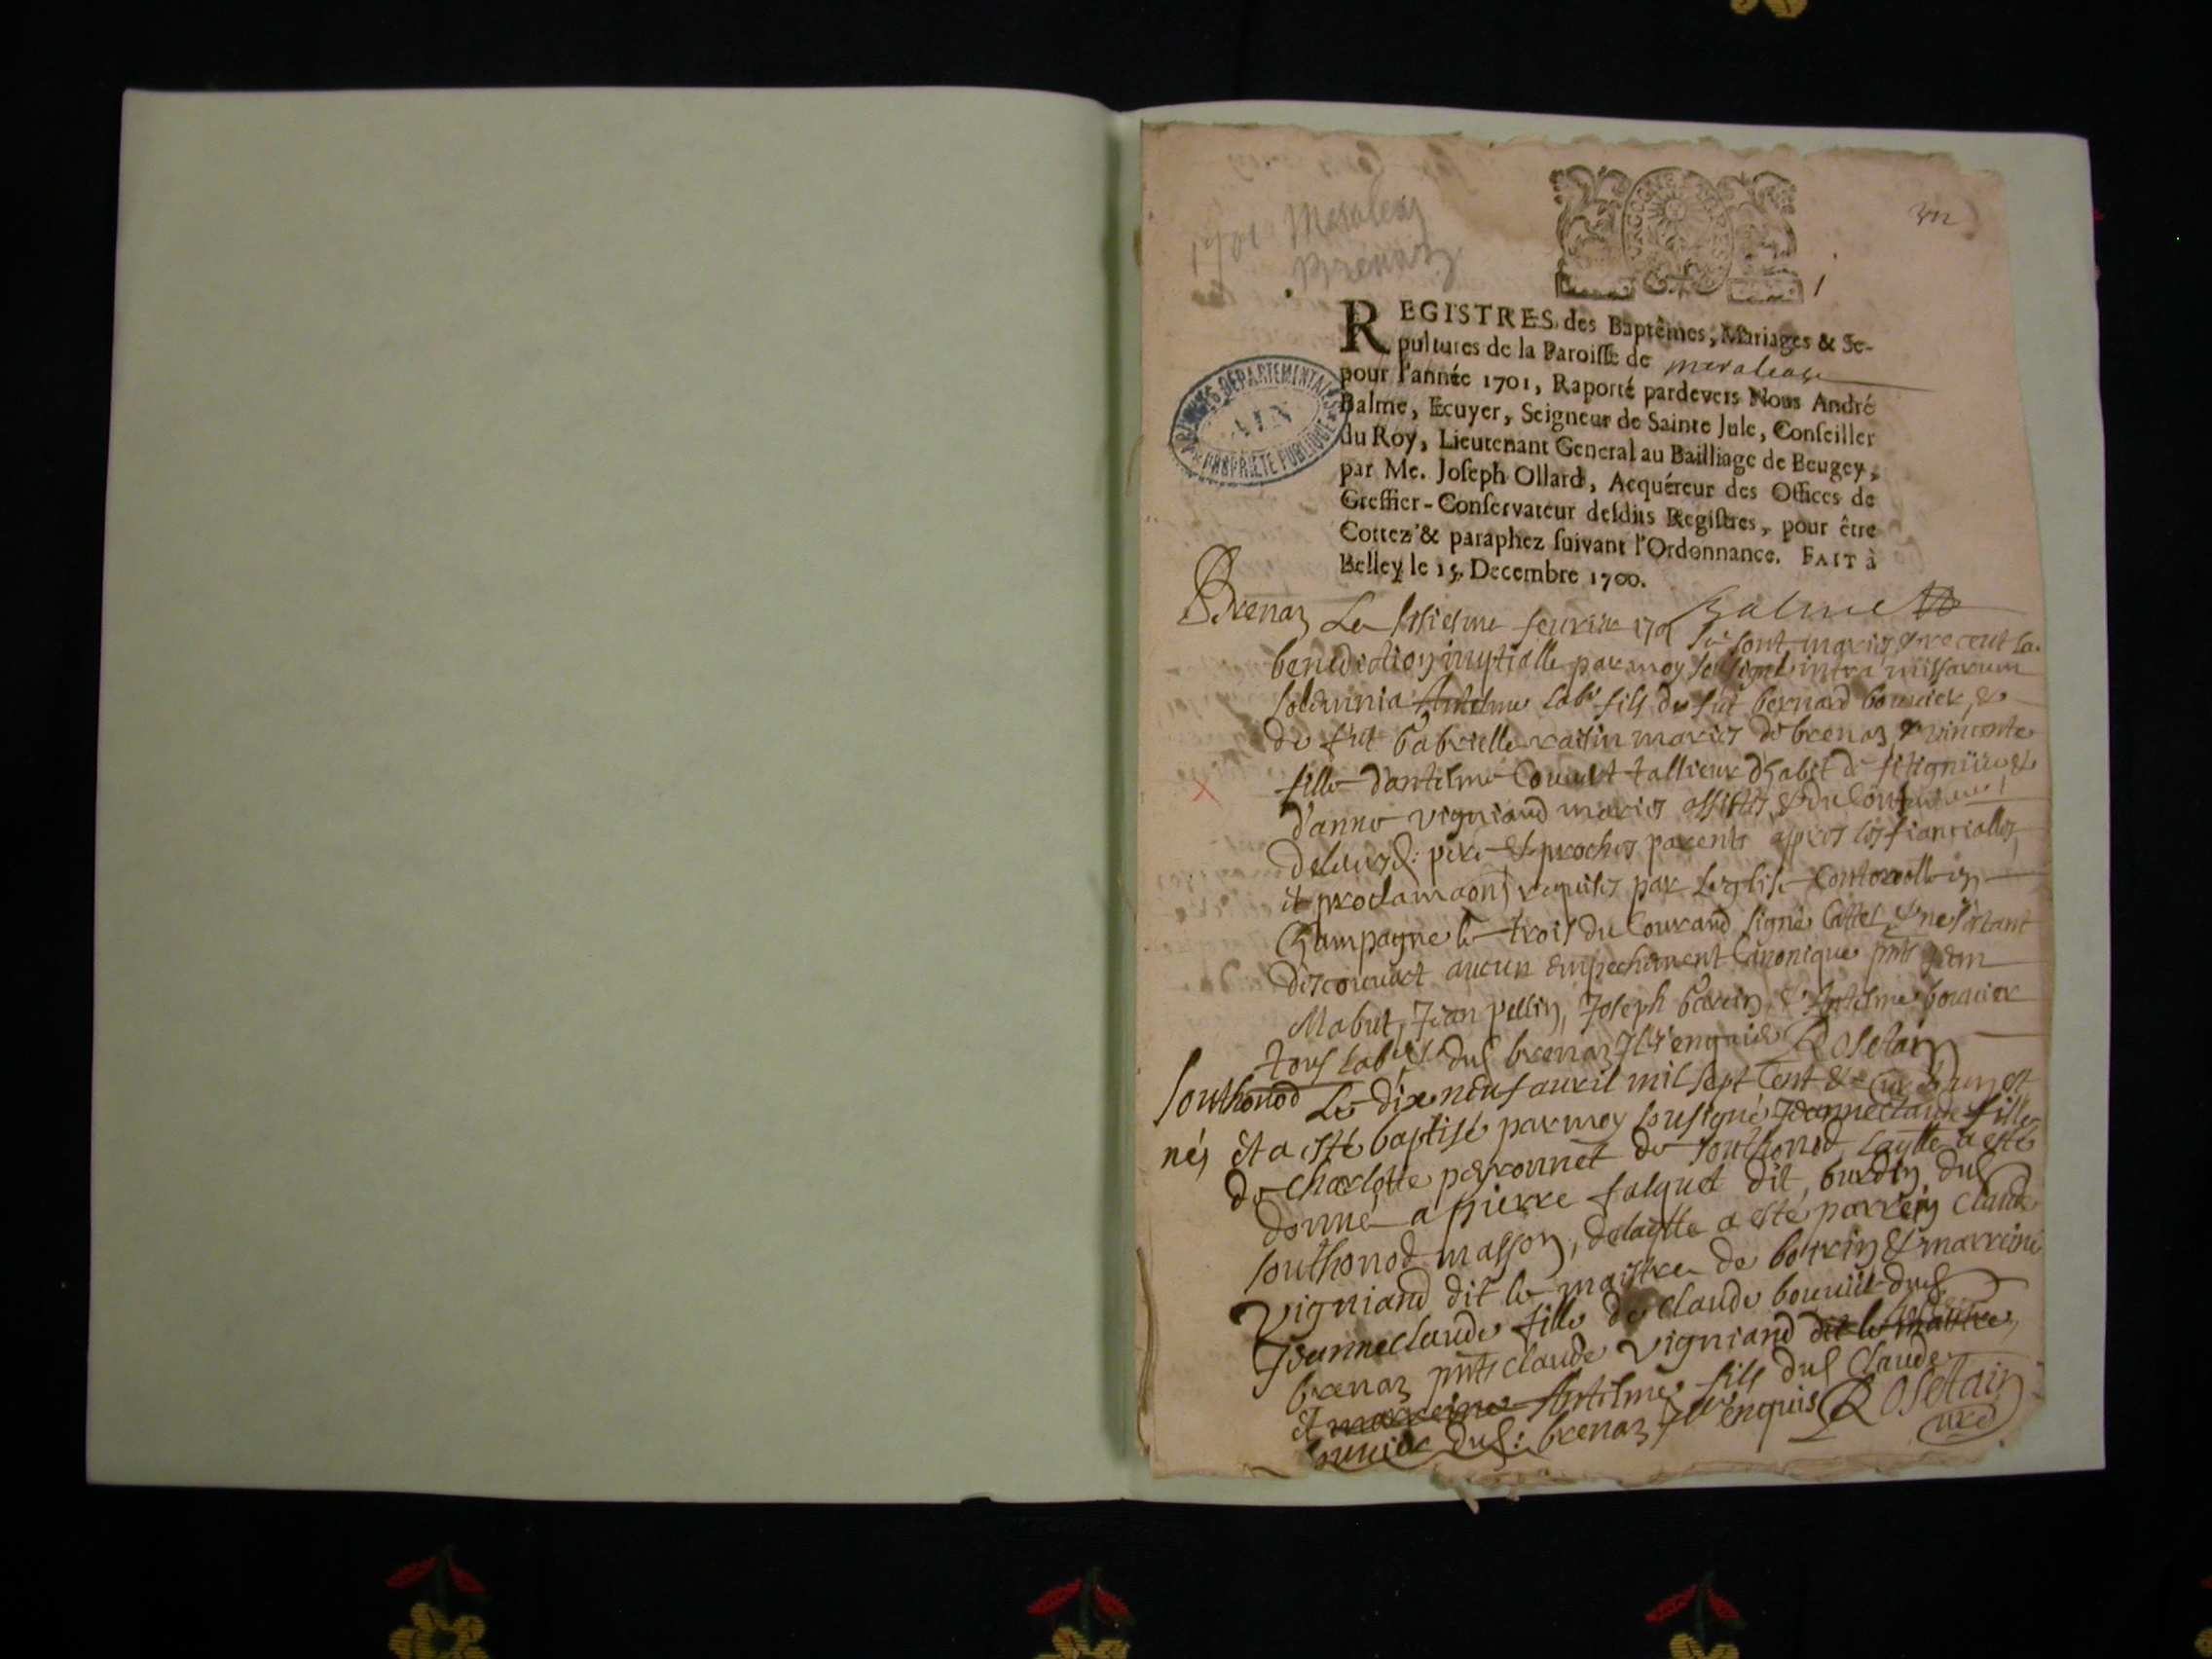 1701 Meraleaz
Brenaz
REGISTRES des Baptêmes, Mariages & Se-
pultures de la Paroisse de meraleaz
pour l'année 1701, Raporté pardevers Nous André
Balme, Ecuyer, Seigneur de Sainte Jule, Conseiller
du Roy, Lieutenant General au Bailliage de Beugey,
par Me. Joseph Ollard, Acquéreur des Offices de
Greffier-Conservateur desdits Registres, pour être
Cottez & paraphez suivant l'Ordonnance. FAIT à
Belley le 15. Decembre 1700.
ARCHIVES DEPARTEMENTALES
AIN
PROPRIETE PUBLIQUE
Balme
Brenaz Le feurier 1701 se sont mariez & receut la
benediction nuptialle par moy soussigné intra missarum
solemnia Antelme lab fils de fut bernard bouuier, &
de fut Gabrielle raisin mariez de brenaz, & vincente
fille d'antelme Couuert tallieur d'habit de &
d'anne vigniand mariez assistés &
de leursd: pere & proches parents appres les fiancialles
et proclamaons requises par l'eglise Controolle en
Champagne le trois du Courand signé Cattel & ne s'estant
descouuert aucun empechement Canonique pnts Jean
Mabut, Jean pellin, Joseph & Antelme bouuier
tous lab dud brenaz enquis Rosetain
Southonod Le dixneuf auril mil sept Cent & un est
néz et a esté baptisé par moy sousigné Jeanneclaude fille
de Charlotte peyronnet de southonod, laqlle a esté
donné a pierre falquet dit burdin, dud
southonod masson, delaqlle a esté parrein Claude
vigniand dit le maistre de & marreine
Jeanneclaude fille de claude bouuier dud
brenaz pnts claude vigniand dit le maistre
et marreine Antelme fils dud Claude
bouuier dud: brenaz enquis Rosetain
curé